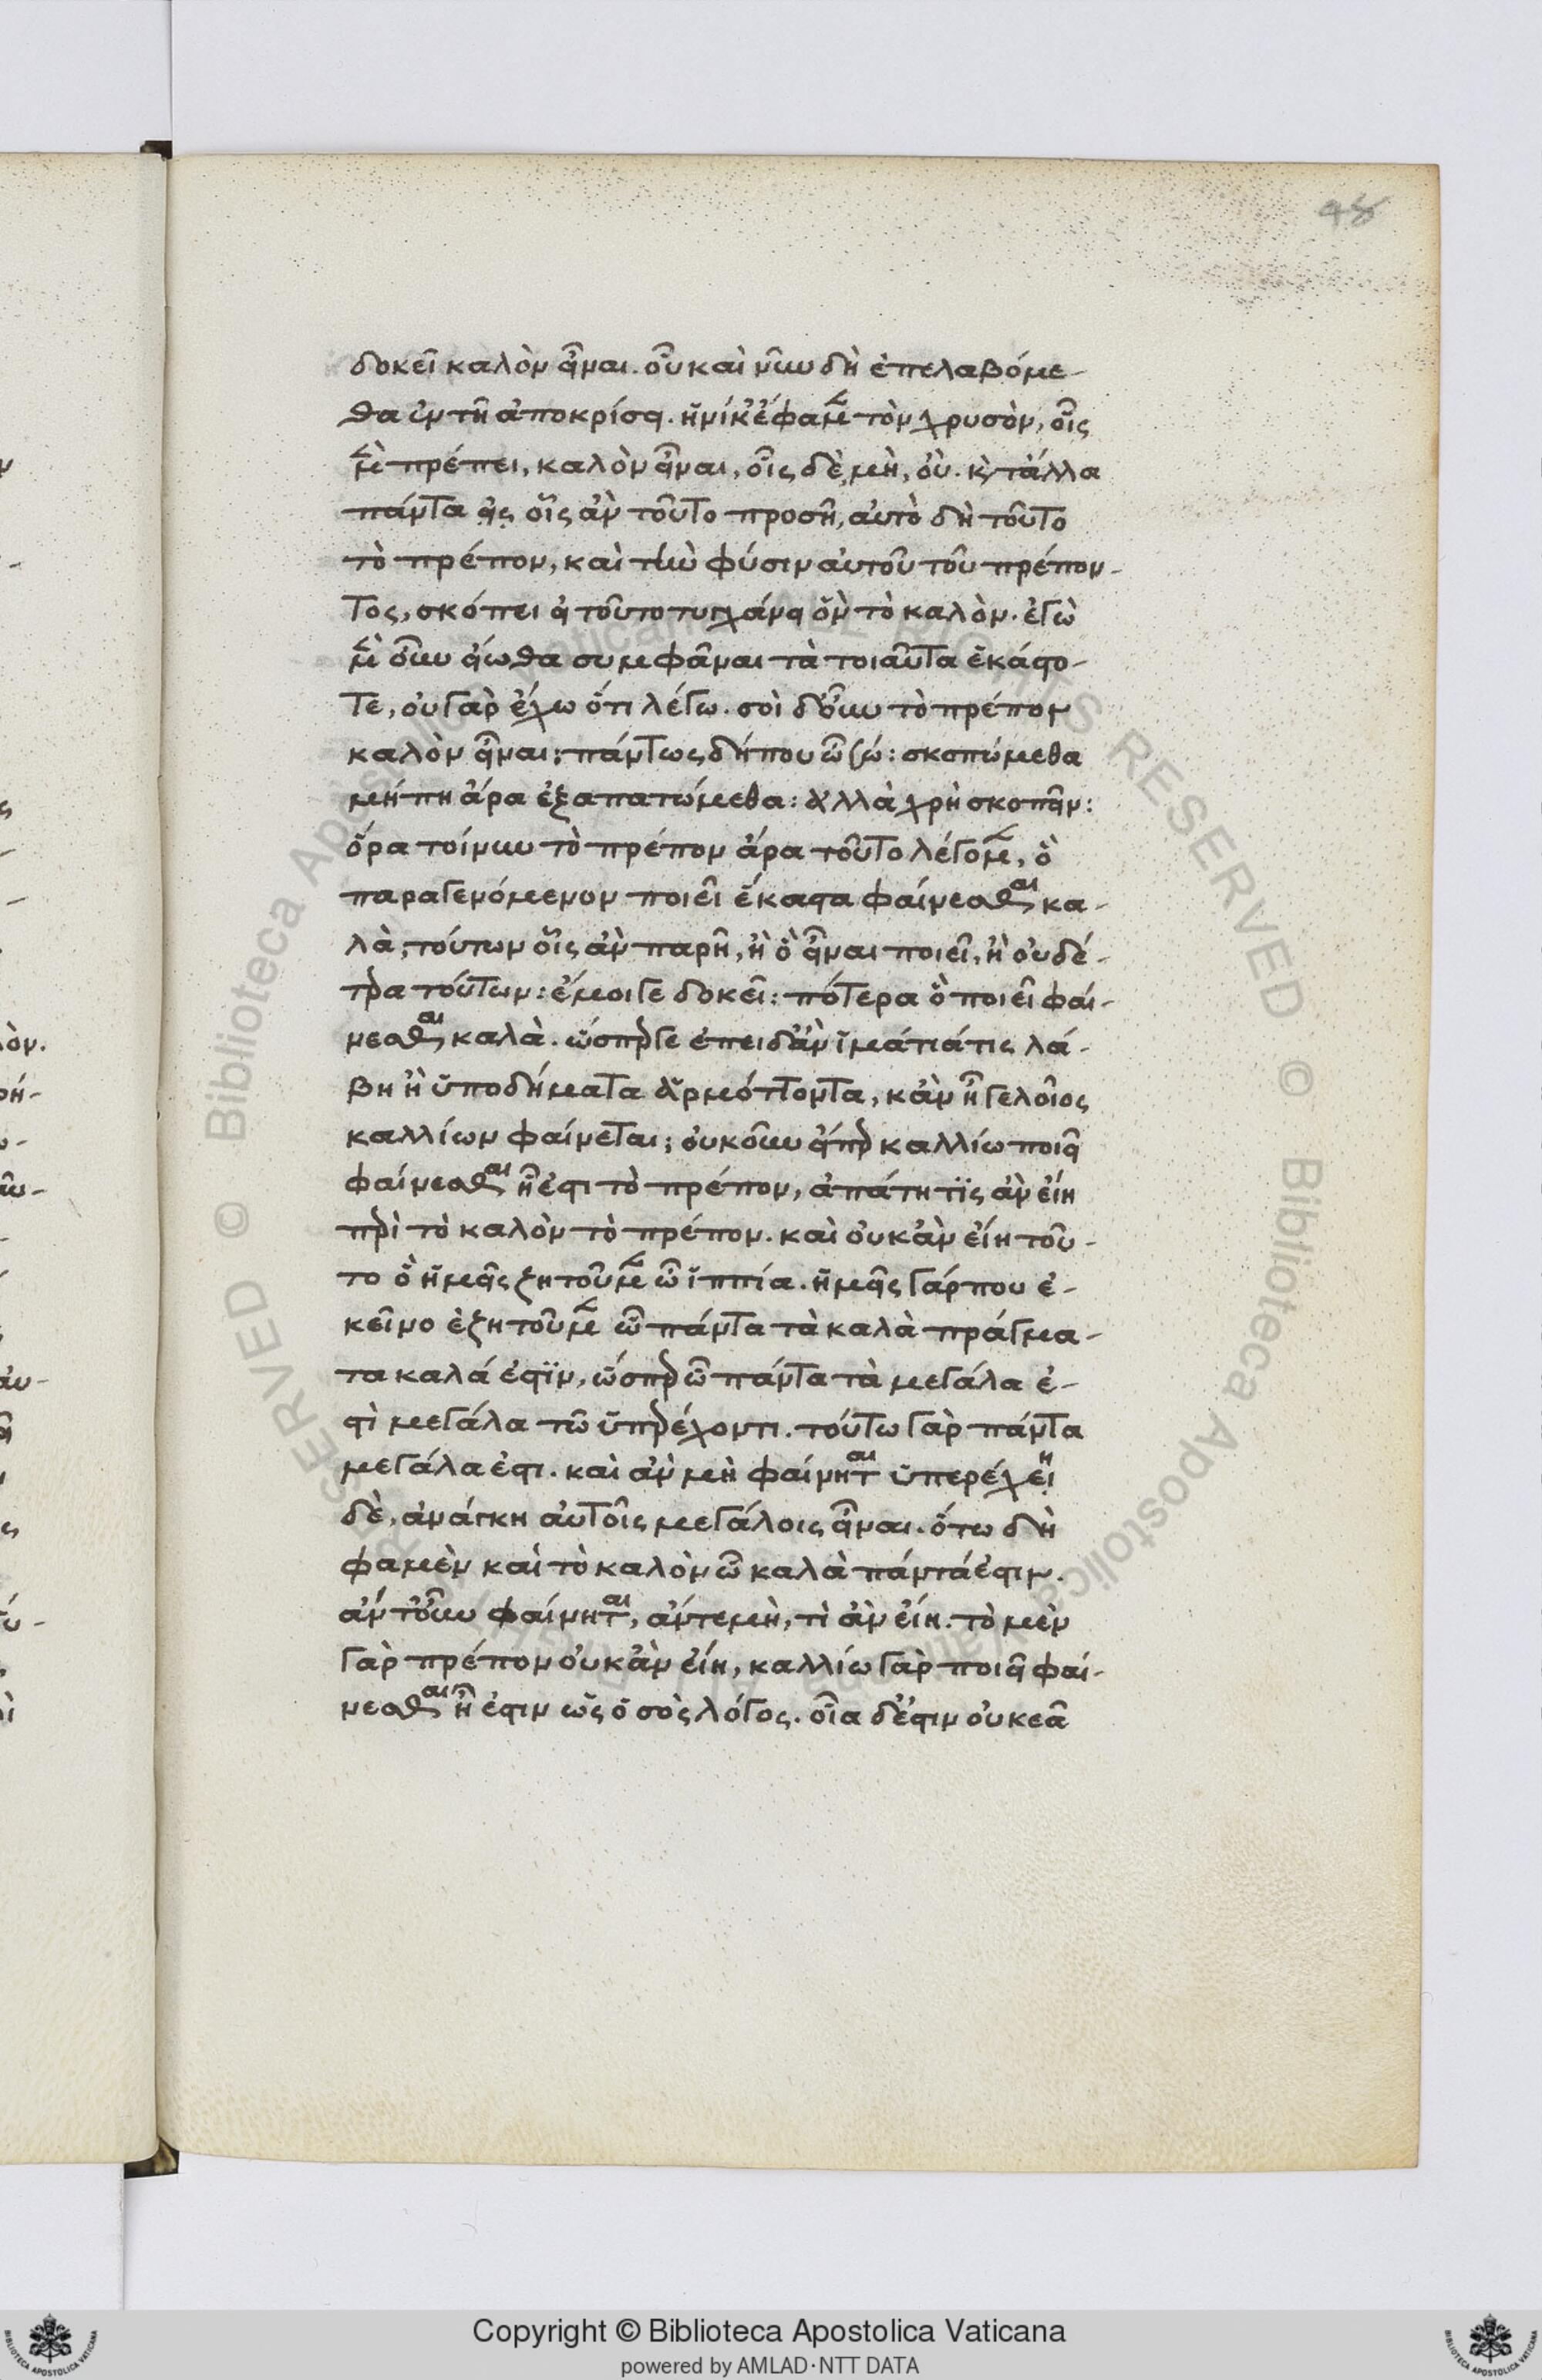 48
δοκεῖ καλὸν εἶναι. οὗ καὶ νῦν δὴ ἐπελαβόμε-
θα ἐν τῆ ἀποκρίσει. ἡνίκ' ἔφαμεν τὸν χρυσὸν, οἷς
μὲν πρέπει, καλὸν εἶναι, οἷς δὲ μὴ, οὐ. καὶ τἄλλα
πάντα εἰς οἷς ἂν τοῦτο προσῆ, αὐτὸ δὴ τοῦτο
τὸ πρέπον, καὶ τὴν φύσιν αὐτοῦ τοῦ πρέπον-
τος, σκόπει εἰ τοῦτο τυγχάνει ὂν τὸ καλὸν. ἐγὼ
μὲν οὖν εἴωθα συμφᾶναι τὰ τοιαῦτα ἑκάστο-
τε, οὐ γὰρ ἔχω ὅτι λέγω. σοὶ δ' οὖν τὸ πρέπον
καλὸν εἶναι; πάντως δήπου ὦ σώ: σκοπώμεθα
μή πη ἄρα ἐξαπατώμεθα: ἀλλὰ χρὴ σκοπεῖν:
ὅρα τοίνυν τὸ πρέπον ἄρα τοῦτο λέγομεν, ὃ
παραγενόμενον ποιεῖ ἕκαστα φαίνεσθαι κα-
λὰ, τούτων οἷς ἂν παρῆ, ἢ ὃ εἶναι ποιεῖ, ἢ οὐδέ-
τερα τούτων: ἔμοιγε δοκεῖ: πότερα ὃ ποιεῖ φαί-
νεσθαι καλὰ. ὥσπερ γε ἐπειδὰν ἱμάτιά τις λά-
βη ἢ ὑποδήματα ἁρμόττοντα, κἂν ἦ γελοῖος
καλλίων φαίνεται; οὐκοῦν εἴπερ καλλίω ποιεῖ
φαίνεσθαι ἢ ἔστι τὸ πρέπον, ἀπάτη τὶς ἂν εἴη
περὶ τὸ καλὸν τὸ πρέπον. καὶ οὐκ ἂν εἴη τοῦ-
το ὃ ἡμεῖς ζητοῦμεν ὦ ἱππία. ἡμεῖς γάρ που ἐ-
κεῖνο ἐζητοῦμεν ὧ πάντα τὰ καλὰ πράγμα-
τα καλά ἐστὶν, ὥσπερ ὧ πάντα τὰ μεγάλα ἐ-
στὶ μεγάλα τῶ ὑπερέχοντι. τούτω γὰρ πάντα
μεγάλα ἐστι. καὶ ἂν μὴ φαίνηται ὑπερέχειη
δὲ, ἀνάγκη αὐτοῖς μεγάλοις εἶναι. ὅτω δὴ
φαμὲν καὶ τὸ καλὸν ὧ καλὰ πάντά ἐστιν.
ἄν τ' οὖν φαίνηται, ἄν τε μὴ, τὶ ἂν εἴη. τὸ μὲν
γὰρ πρέπον οὐκ ἂν εἴη, καλλίω γὰρ ποιεῖ φαί-
νεσθαι ἢ ἔστιν ὡς ὁ σὸς λόγος. οἷα δ' ἔστιν οὐκ ἐᾶ